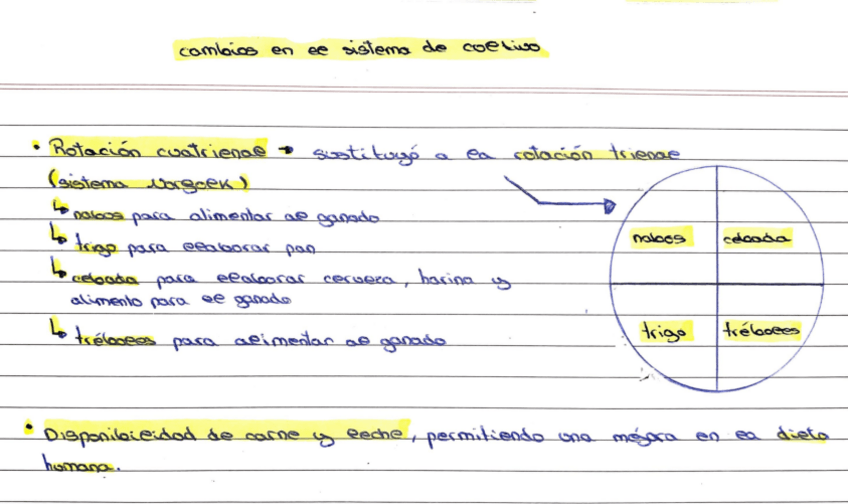 cambios en el sistema de cultivo
• Rotación cuatrienal → sustituyó a la rotación trienal
(sistema Norfolk)
↳ nabos para alimentar al ganado
↳ trigo para elaborar pan
↳ cebada para elaborar cerveza, harina y
alimento para el ganado
↳ tréboles para alimentar al ganado
nabos cebada
trigo tréboles
• Disponibilidad de carne y leche, permitiendo una mejora en la dieta
humana.